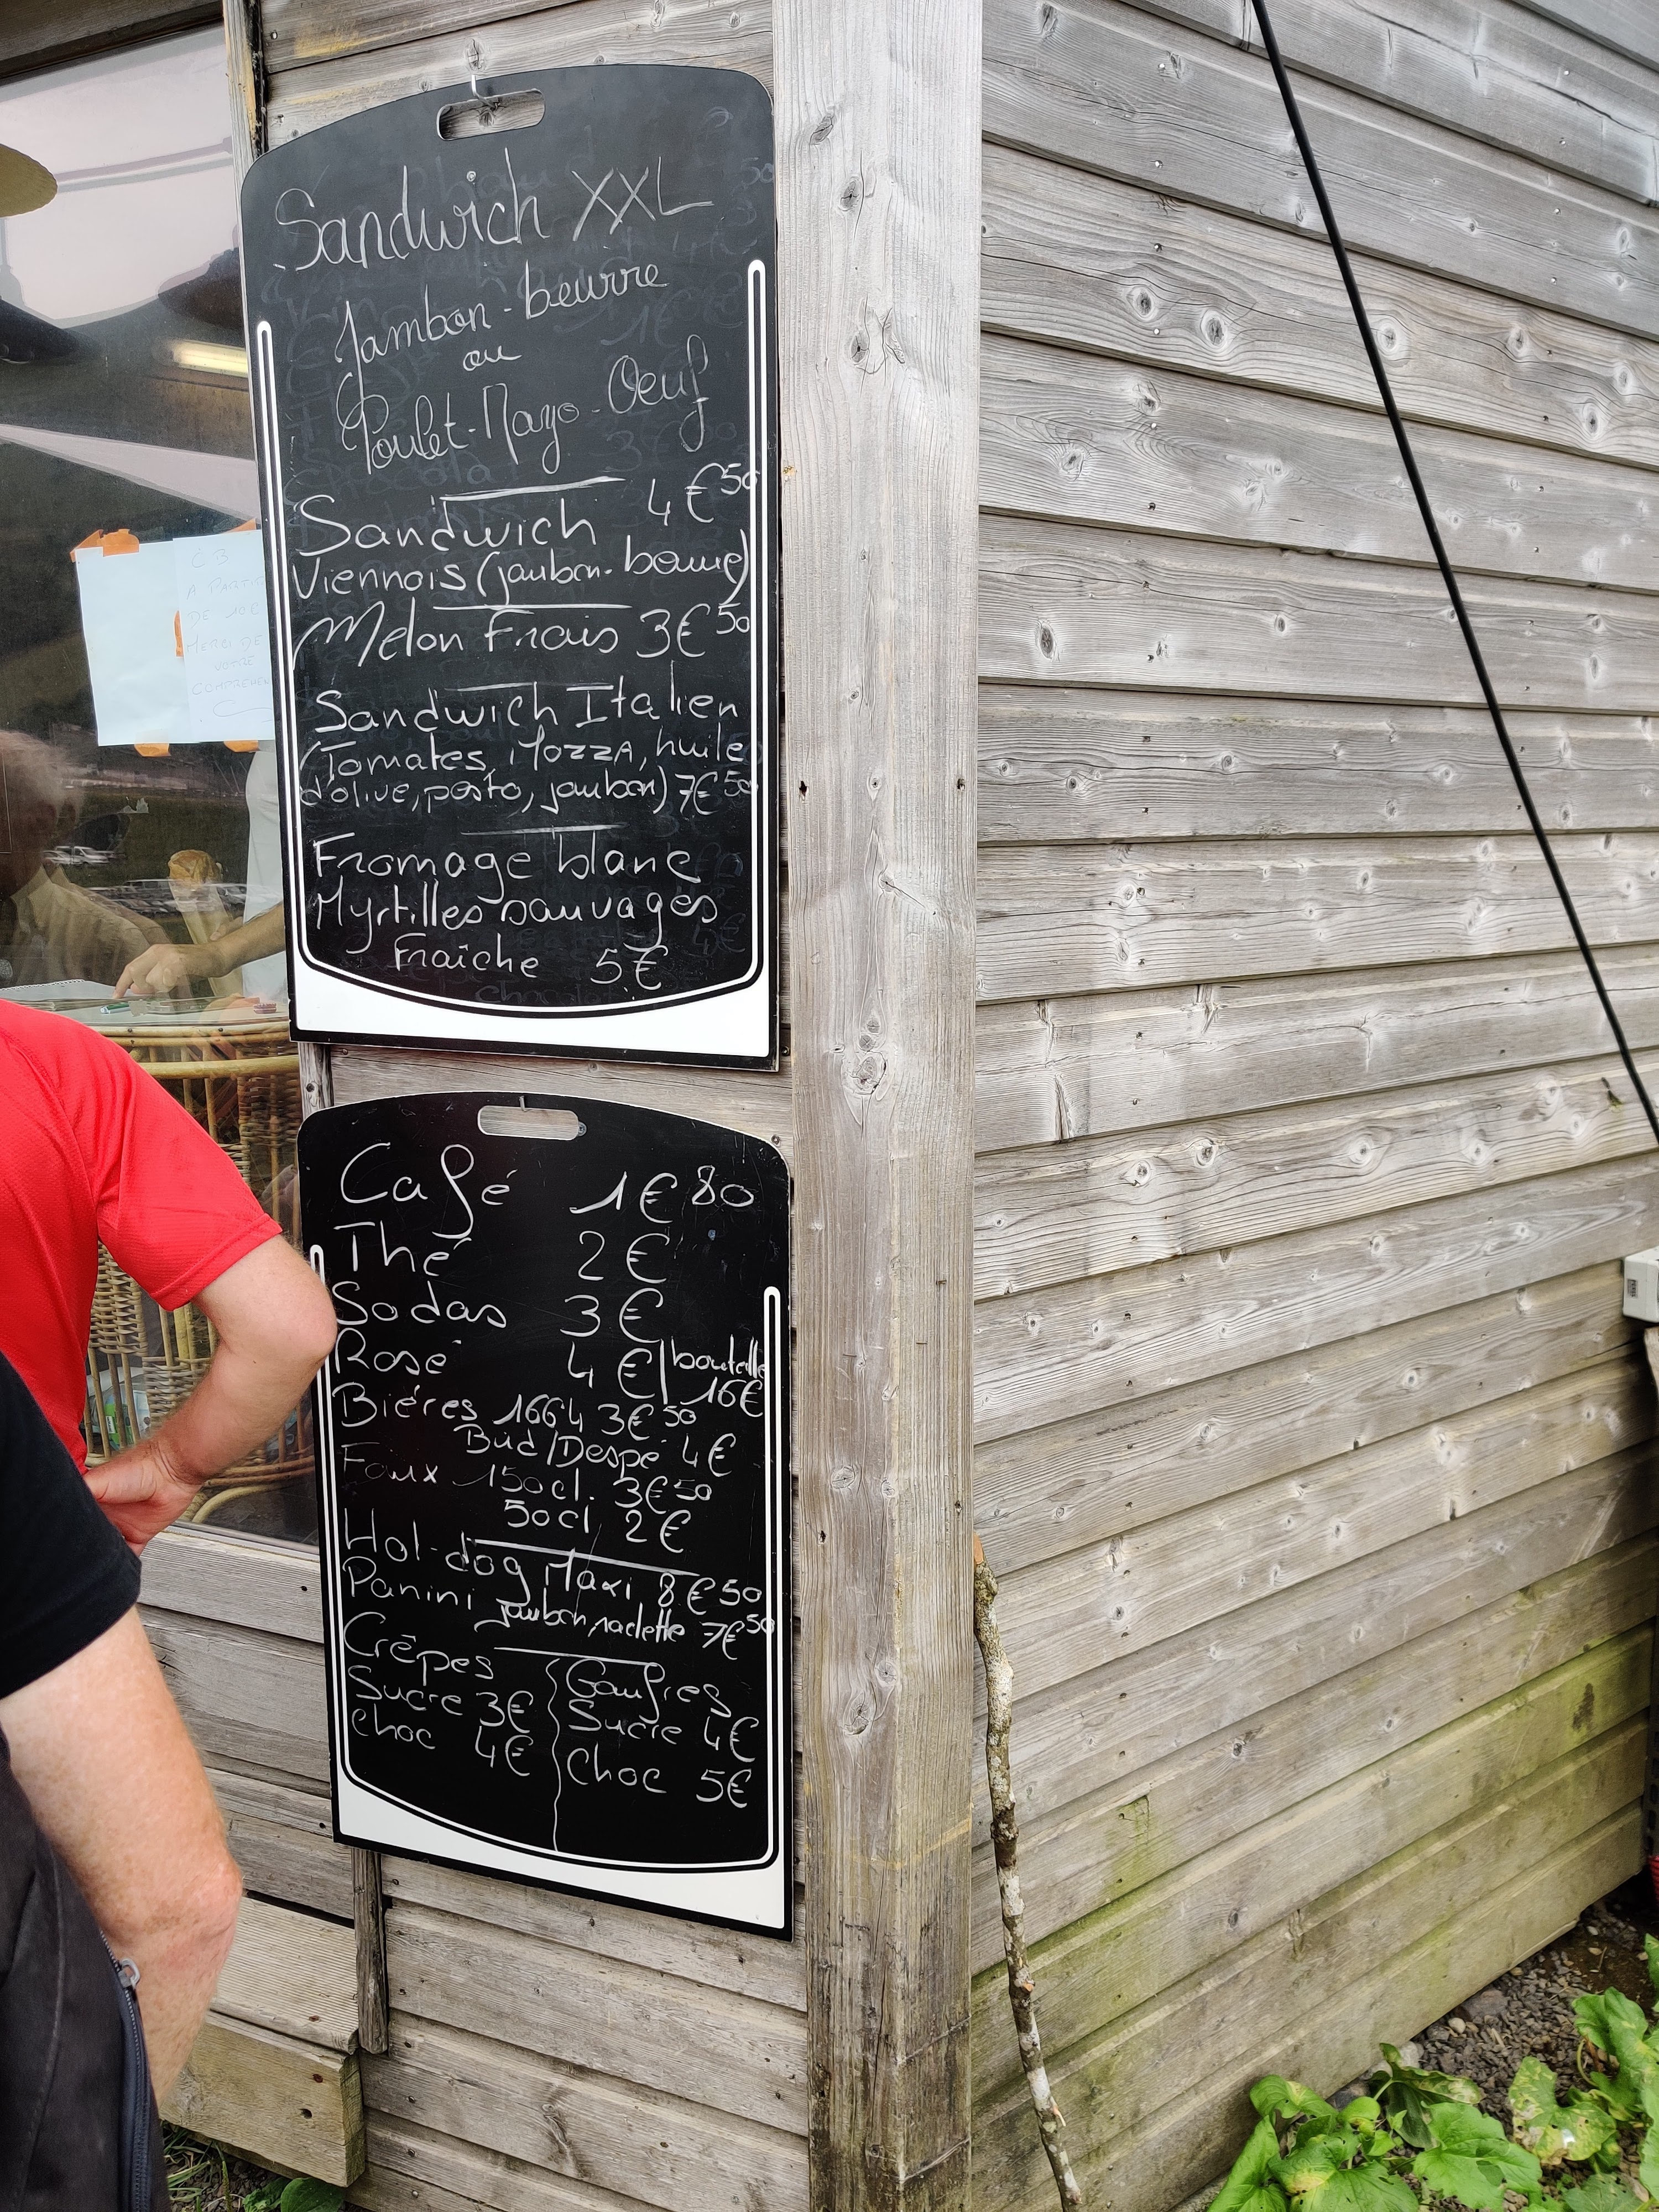 Sandwich XXL
Jambon-beurre
ou
Poulet-Mayo-Oeuf
Sandwich 4€50
Viennois (jambon-beurre)
Melon Frais 3€50
Sandwich Italien
(Tomates, Mozza, huile
d'olive, pesto, jambon) 7€50
Fromage blanc
Myrtilles sauvages
Fraîche 5€
CB
A PARTIR
DE 10€
MERCI DE
VOTRE
COMPREHEN
Café 1€80
Thé 2€
Sodas 3€
Rosé 4€ | bouteille
16€
Bières 1664 3€50
Bud/Despé 4€
Eaux 150cl. 3€50
50cl 2€
Hot-dog Maxi 8€50
Panini jambon, raclette 7€50
Crêpes
Sucre 3€
choc 4€
Gaufres
Sucre 4€
Choc 5€